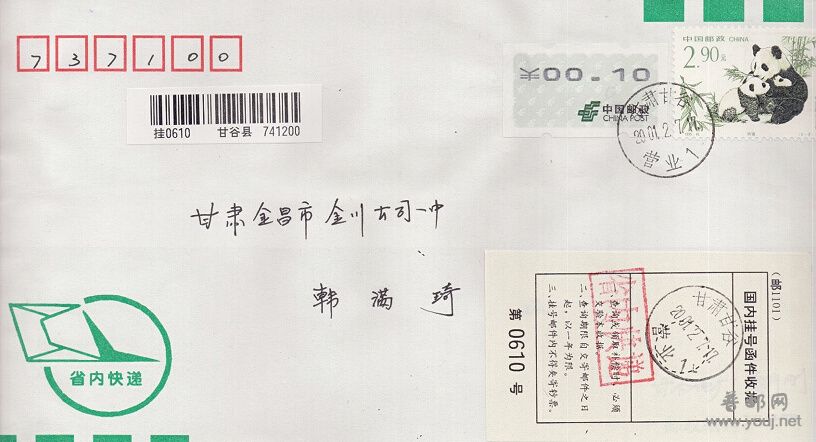 737100
挂0610 甘谷县 741200
¥00.10
中国邮政
CHINA POST
中国邮政 CHINA
2.90元
甘肃甘谷
2001.2.7.
营业 1
甘肃金昌市金川公司一中
韩满琦
省内快递
(邮1101)
国内挂号函件收据
甘肃甘谷
2001.2.7.12
营业 1
一、查询或领取补偿时，必须交验本收据。
二、查询期限自交寄邮件之日起，以一年为限。
三、挂号邮件内不得夹寄钞票。
第 0610 号
普邮网
www.youj.net